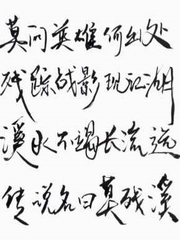 莫问英雄何出处
残踪战影现江湖
溪水不竭长流远
传说名曰莫残溪